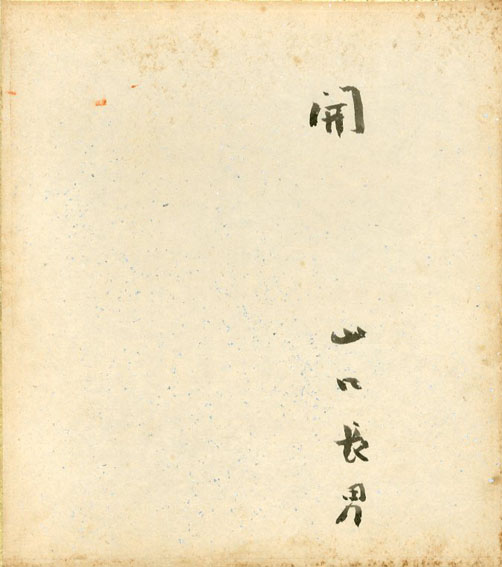 開
山口長男